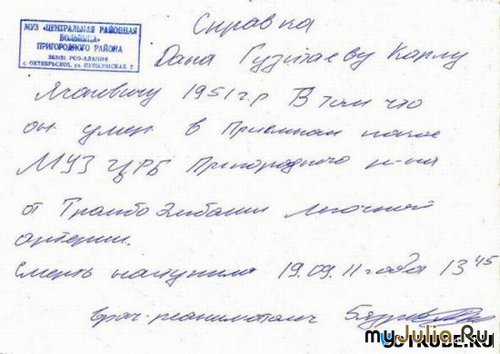 Справка
МУЗ «ЦЕНТРАЛЬНАЯ РАЙОННАЯ
БОЛЬНИЦА»
ПРИГОРОДНОГО РАЙОНА
363131 РСО-АЛАНИЯ
с. ОКТЯБРЬСКОЕ, ул.
Дана Гузитаеву Карлу
1951 г.р В том что
он умер в Приемном покое
МУЗ ЦРБ Пригородного р-на
от Тромбо Эмболии легочной
артерии.
Смерть наступила 19.09.11 года 13 45
Врач-реаниматолог
myJulia.Ru